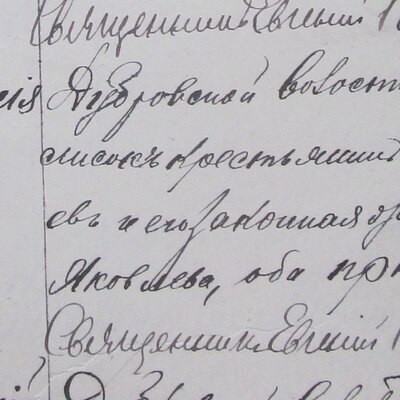 Священникъ Евгеній
Дубровской волост
списокъ крестьянинъ
евъ и его законная
Яковлева, оба пр
Священникъ Евгеній